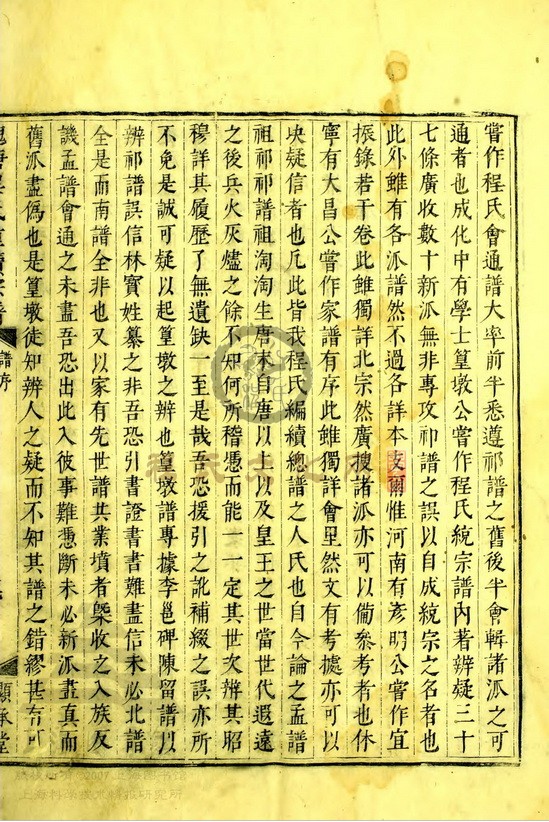 嘗作程氏會通譜大率前半悉遵祁譜之舊後半會輯諸派之可
通者也成化中有學士篁墩公嘗作程氏統宗譜內著辨疑三十
七條廣收數十新派無非專攻祁譜之誤以自成統宗之名者也
此外雖有各派譜然不過各詳本支爾惟河南有彥明公嘗作宜
振錄若干卷此雖獨詳北宗然廣搜諸派亦可以備參考者也休
寧有大昌公嘗作家譜有序此雖獨詳會里然文有考據亦可以
決疑信者也凡此皆我程氏編續總譜之人氏也自今論之孟譜
祖祁祁譜祖淘淘生唐末自唐以上以及皇王之世當世代遐遠
之後兵火灰燼之餘不知何所稽憑而能一一定其世次辨其昭
穆詳其履歷了無遺缺一至是哉吾恐援引之訛補綴之誤亦所
不免是誠可疑以起篁墩之辨也篁墩譜專據李邕碑陳留譜以
辨祁譜誤信林寶姓纂之非吾恐引書證書書難盡信未必北譜
全是而南譜全非也又以家有先世譜其業墳者槩收之入族反
譏孟譜會通之未盡吾恐出此入彼事難憑斷未必新派盡真而
舊派盡偽也是篁墩徒知辨人之疑而不知其譜之錯繆甚有可
譜序
顯承堂
上海科学技术情报研究所